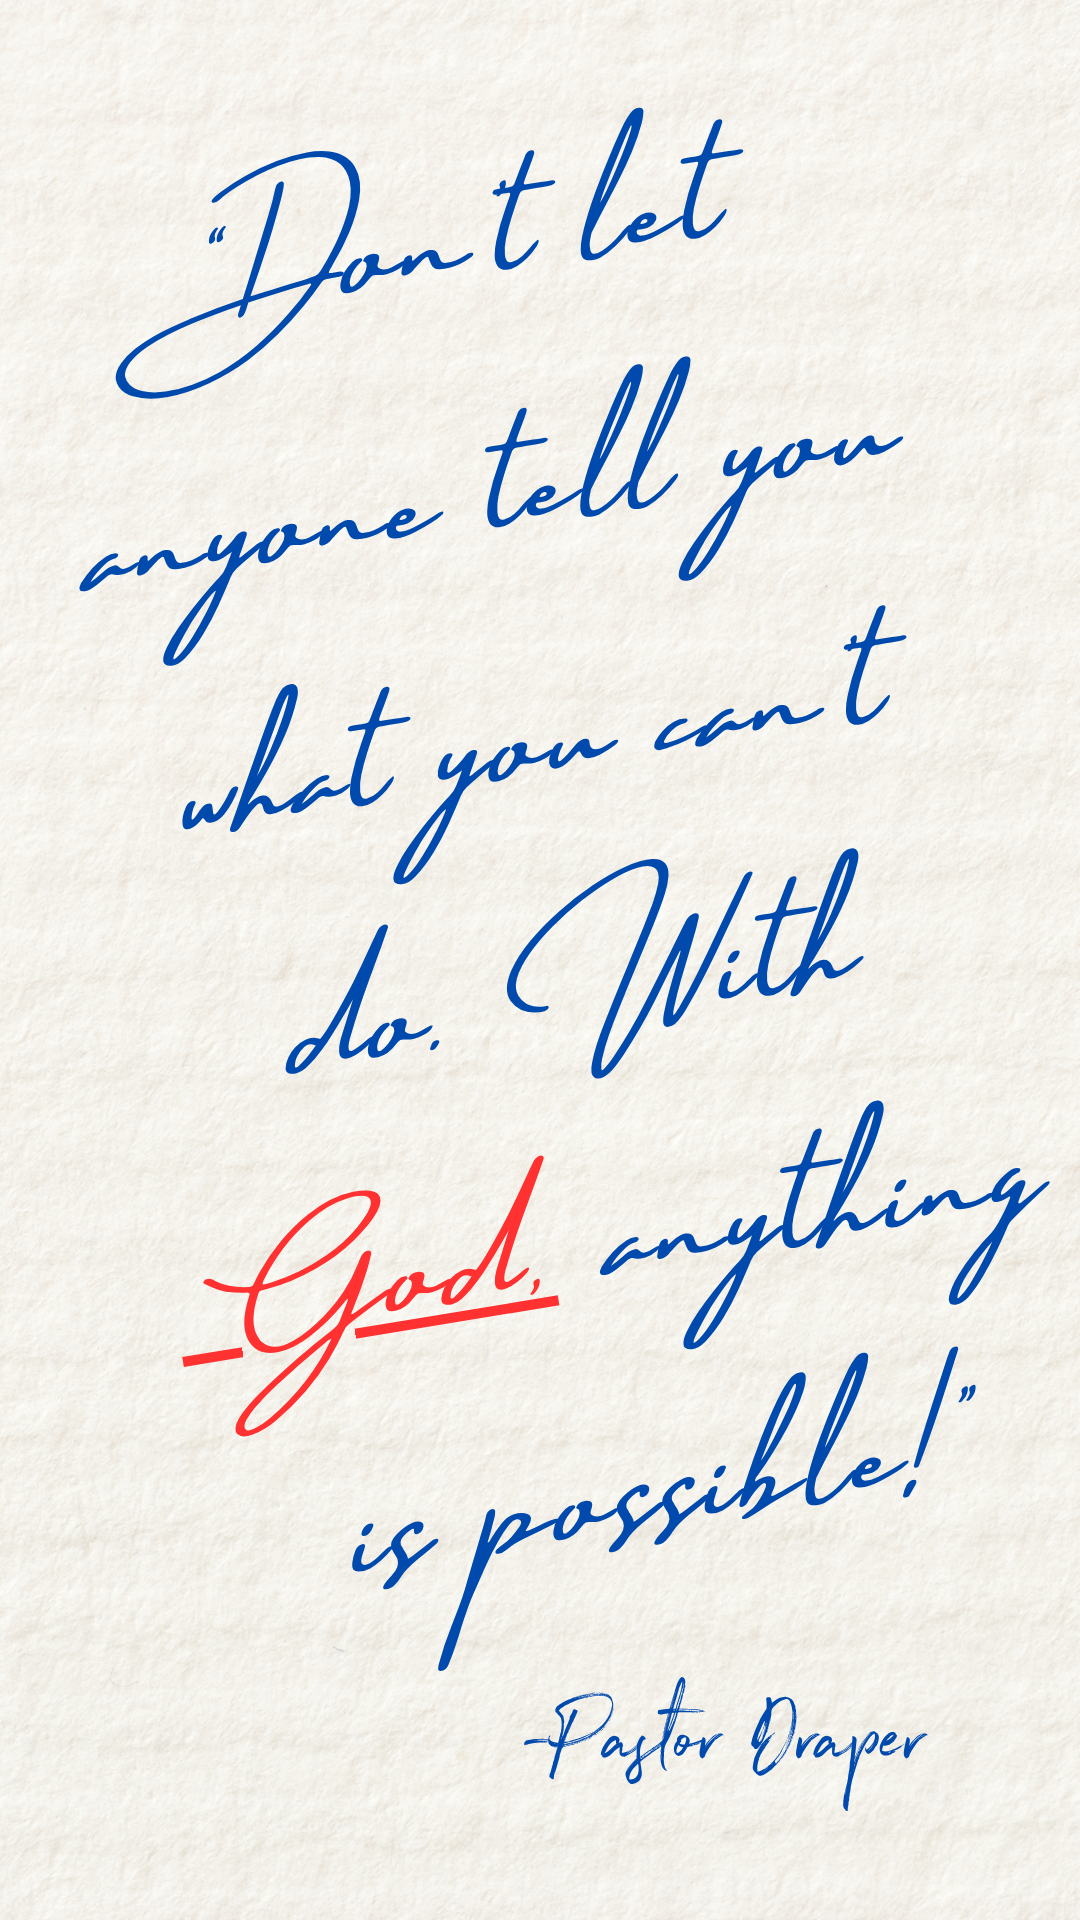 “Don't let
anyone tell you
what you can't
do. With
God, anything
is possible!”
-Pastor Draper